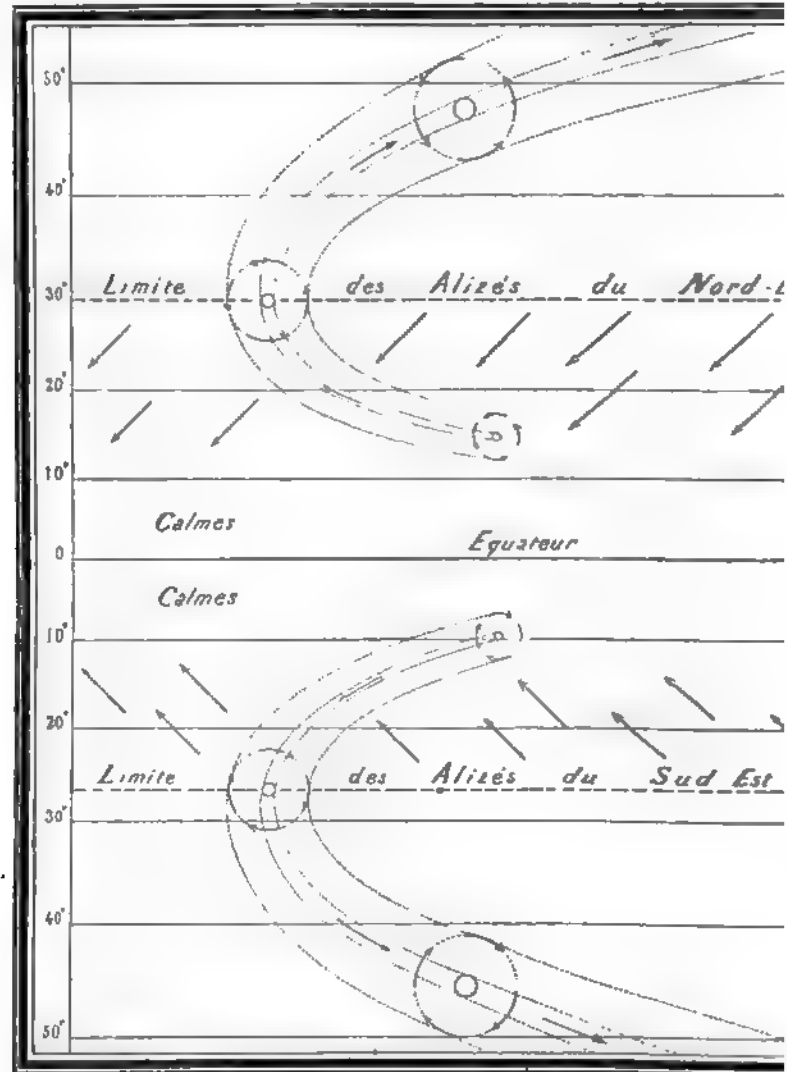 50°
40°
Limite des Alizés du Nord-
30°
20°
10°
Calmes
Equateur
0
Calmes
10°
20°
Limite des Alizés du Sud Est
30°
40°
50°